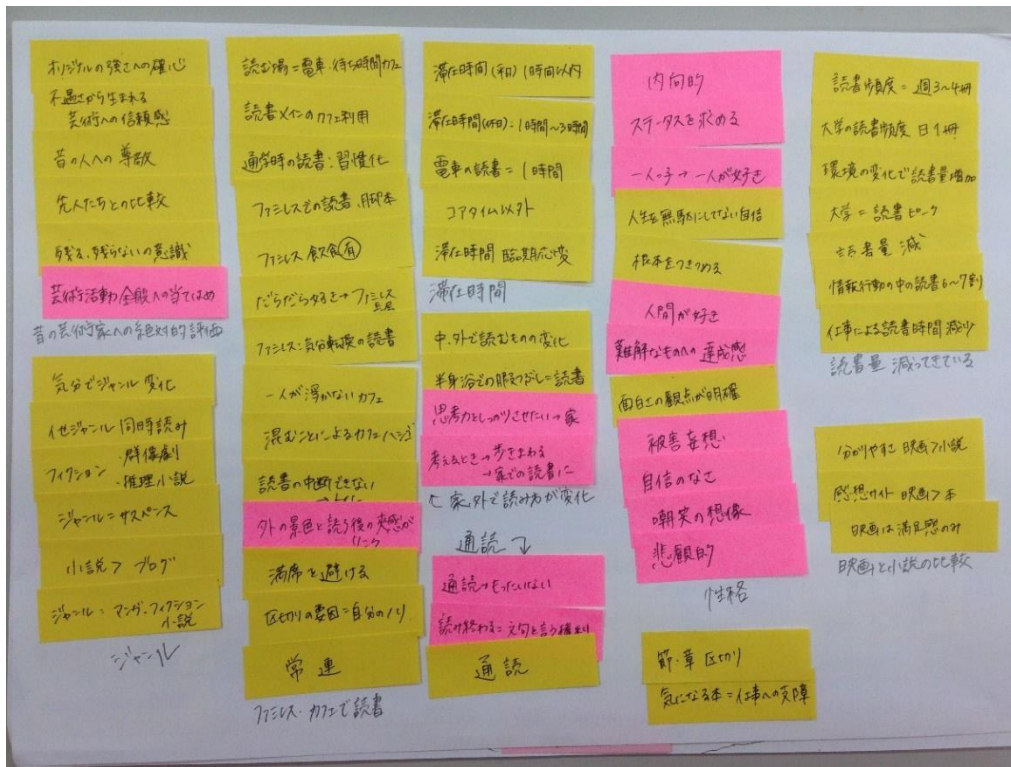 オリジナルの強さへの確心
不遇さから生まれる
芸術への信頼感
昔の人への尊敬
先人たちとの比較
残る、残らないの意識
芸術活動全般への当てはめ
昔の芸術家への絶対的評価
気分でジャンル変化
他ジャンル同時読み
フィクション ・群像劇
・推理小説
ジャンル=サスペンス
小説>ブログ
ジャンル=マンガ・フィクション
小説
ジャンル
読む場=電車、待ち時間カフェ
読書メインのカフェ利用
通学時の読書:習慣化
ファミレスでの読書、脚本
ファミレス 飲食有
だらだらするき→ファミレス
ファミレス:気分転換の読書
一人が浮かないカフェ
混むことによるカフェハシゴ
読書の中断できない
外の景色と読了後の爽快感が
リンク
満席を避ける
区切りの要因=自分のノリ
常連
ファミレス・カフェで読書
滞在時間(平日)1時間以内
滞在時間(休日):1時間~3時間
電車の読書=1時間
コアタイム以外
滞在時間 臨期応変
滞在時間
中、外で読むものの変化
半身浴での暇つぶし=読書
思考力としっかりさせたい→家
考えるとき→歩きまわる
→家での読書に
↑家、外で読み方が変化
通読↓
通読→もったいない
読み終わる=文句を言う権利
通読
内向的
ステータスを求める
一人っ子→一人が好き
人生を無駄にしてない自信
根本をつきつめる
人間が好き
難解なものへの達成感
面白さの観点が明確
被害妄想
自信のなさ
嘲笑の想像
悲願的
性格
節・章 区切り
気になる本=仕事への支障
読書頻度=週3~4冊
大学の読書頻度 日1冊
環境の変化で読書量増加
大学=読書ピーク
読書量 減
情報行動の中の読書6~7割
仕事による読書時間減少
読書量 減ってきている
分かりやすさ 映画>小説
感想サイト 映画>本
映画は満足感のみ
映画と小説の比較